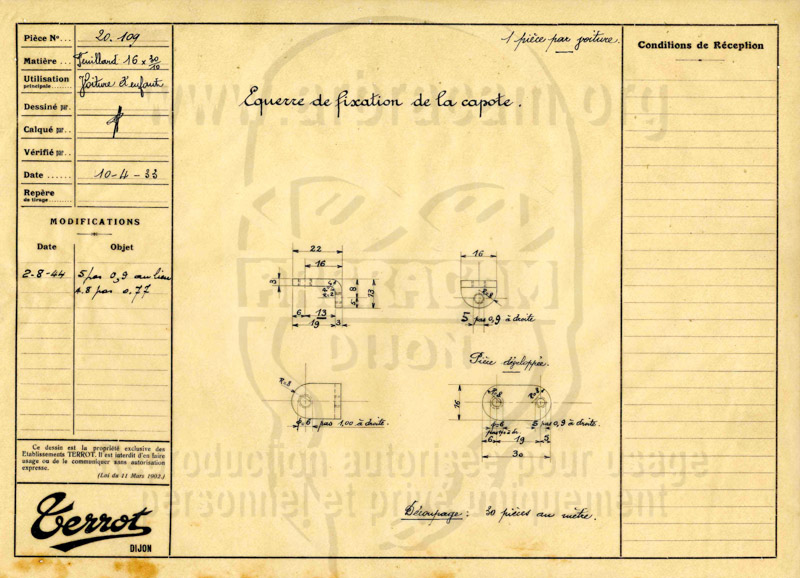 Pièce Nº... 20.109
Matière... Feuillard 16 x 30/10
Utilisation principale... Voiture d'enfant
Dessiné par.
Calqué par..
Vérifié par..
Date ...... 10-4-33
Repère de tirage......
MODIFICATIONS
Date Objet
2-8-44 5 pas 0,9 au lieu
4.8 pas 0.77
Ce dessin est la propriété exclusive des
Etablissements TERROT. Il est interdit d'en faire
usage ou de le communiquer sans autorisation
expresse.
(Loi du 11 Mars 1902.)
Terrot
DIJON
1 pièce par voiture.
Equerre de fixation de la capote.
22
16
3
8
5
13
6 13
19 3
16
R=8
5 pas 0,9 à droite
R=8
φ=6 pas 1,00 à droite.
Pièce développée.
R=8
R=8
16
φ=6
5 pas 0,9 à droite.
6 19 5
30
Découpage: 30 pièces au mètre.
Conditions de Réception
www.arbracam.org
ARBRACAM
DIJON
reproduction autorisée pour usage
personnel et privé uniquement